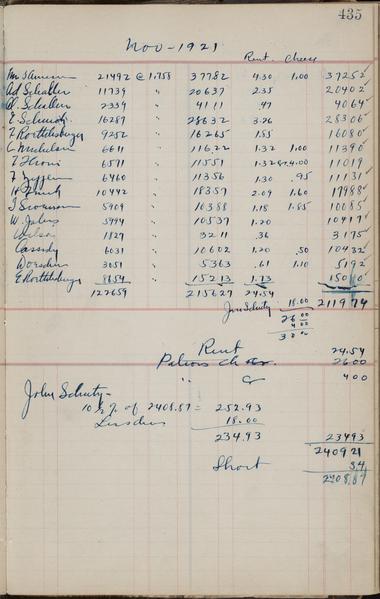 435
Nov - 1921
Rent. Cheese
21492 @ 1.758 37782 4.30 1.00 37252 ✓
Ad Schaller 11739 " 20637 2.35 20402 ✓
Schaller 2339 " 4111 .47 4064 ✓
E Schmidt 16287 " 28632 3.26 28306 ✓
F Roethlisberger 9252 " 16265 1.85 16080 ✓
6611 " 11622 1.32 1.00 11390 ✓
6571 " 11551 1.32 4.00 11019
6460 " 11356 1.30 .95 11131 ✓
10442 " 18357 2.09 1.60 17988 ✓
5909 " 10388 1.18 1.85 10085 ✓
W. 5994 " 10537 1.20 10417 ✓
1827 " 3211 .36 3175 ✓
Cassidy 6031 " 10602 1.20 .50 10432 ✓
3051 " 5363 .61 1.10 5192 ✓
E Roethlisberger 8654 " 15213 1.73 15040 ✓
122659 215627 24.54 211974
John Schuty 18.00
26 00
4 00
Rent 24.54
Patrons Cheese. 26 00
" 4 00
John Schuty -
10 ½ % of 2408.87 = 252.93
Less 18.00
234.93 23493
240921
Short 34
2408,87